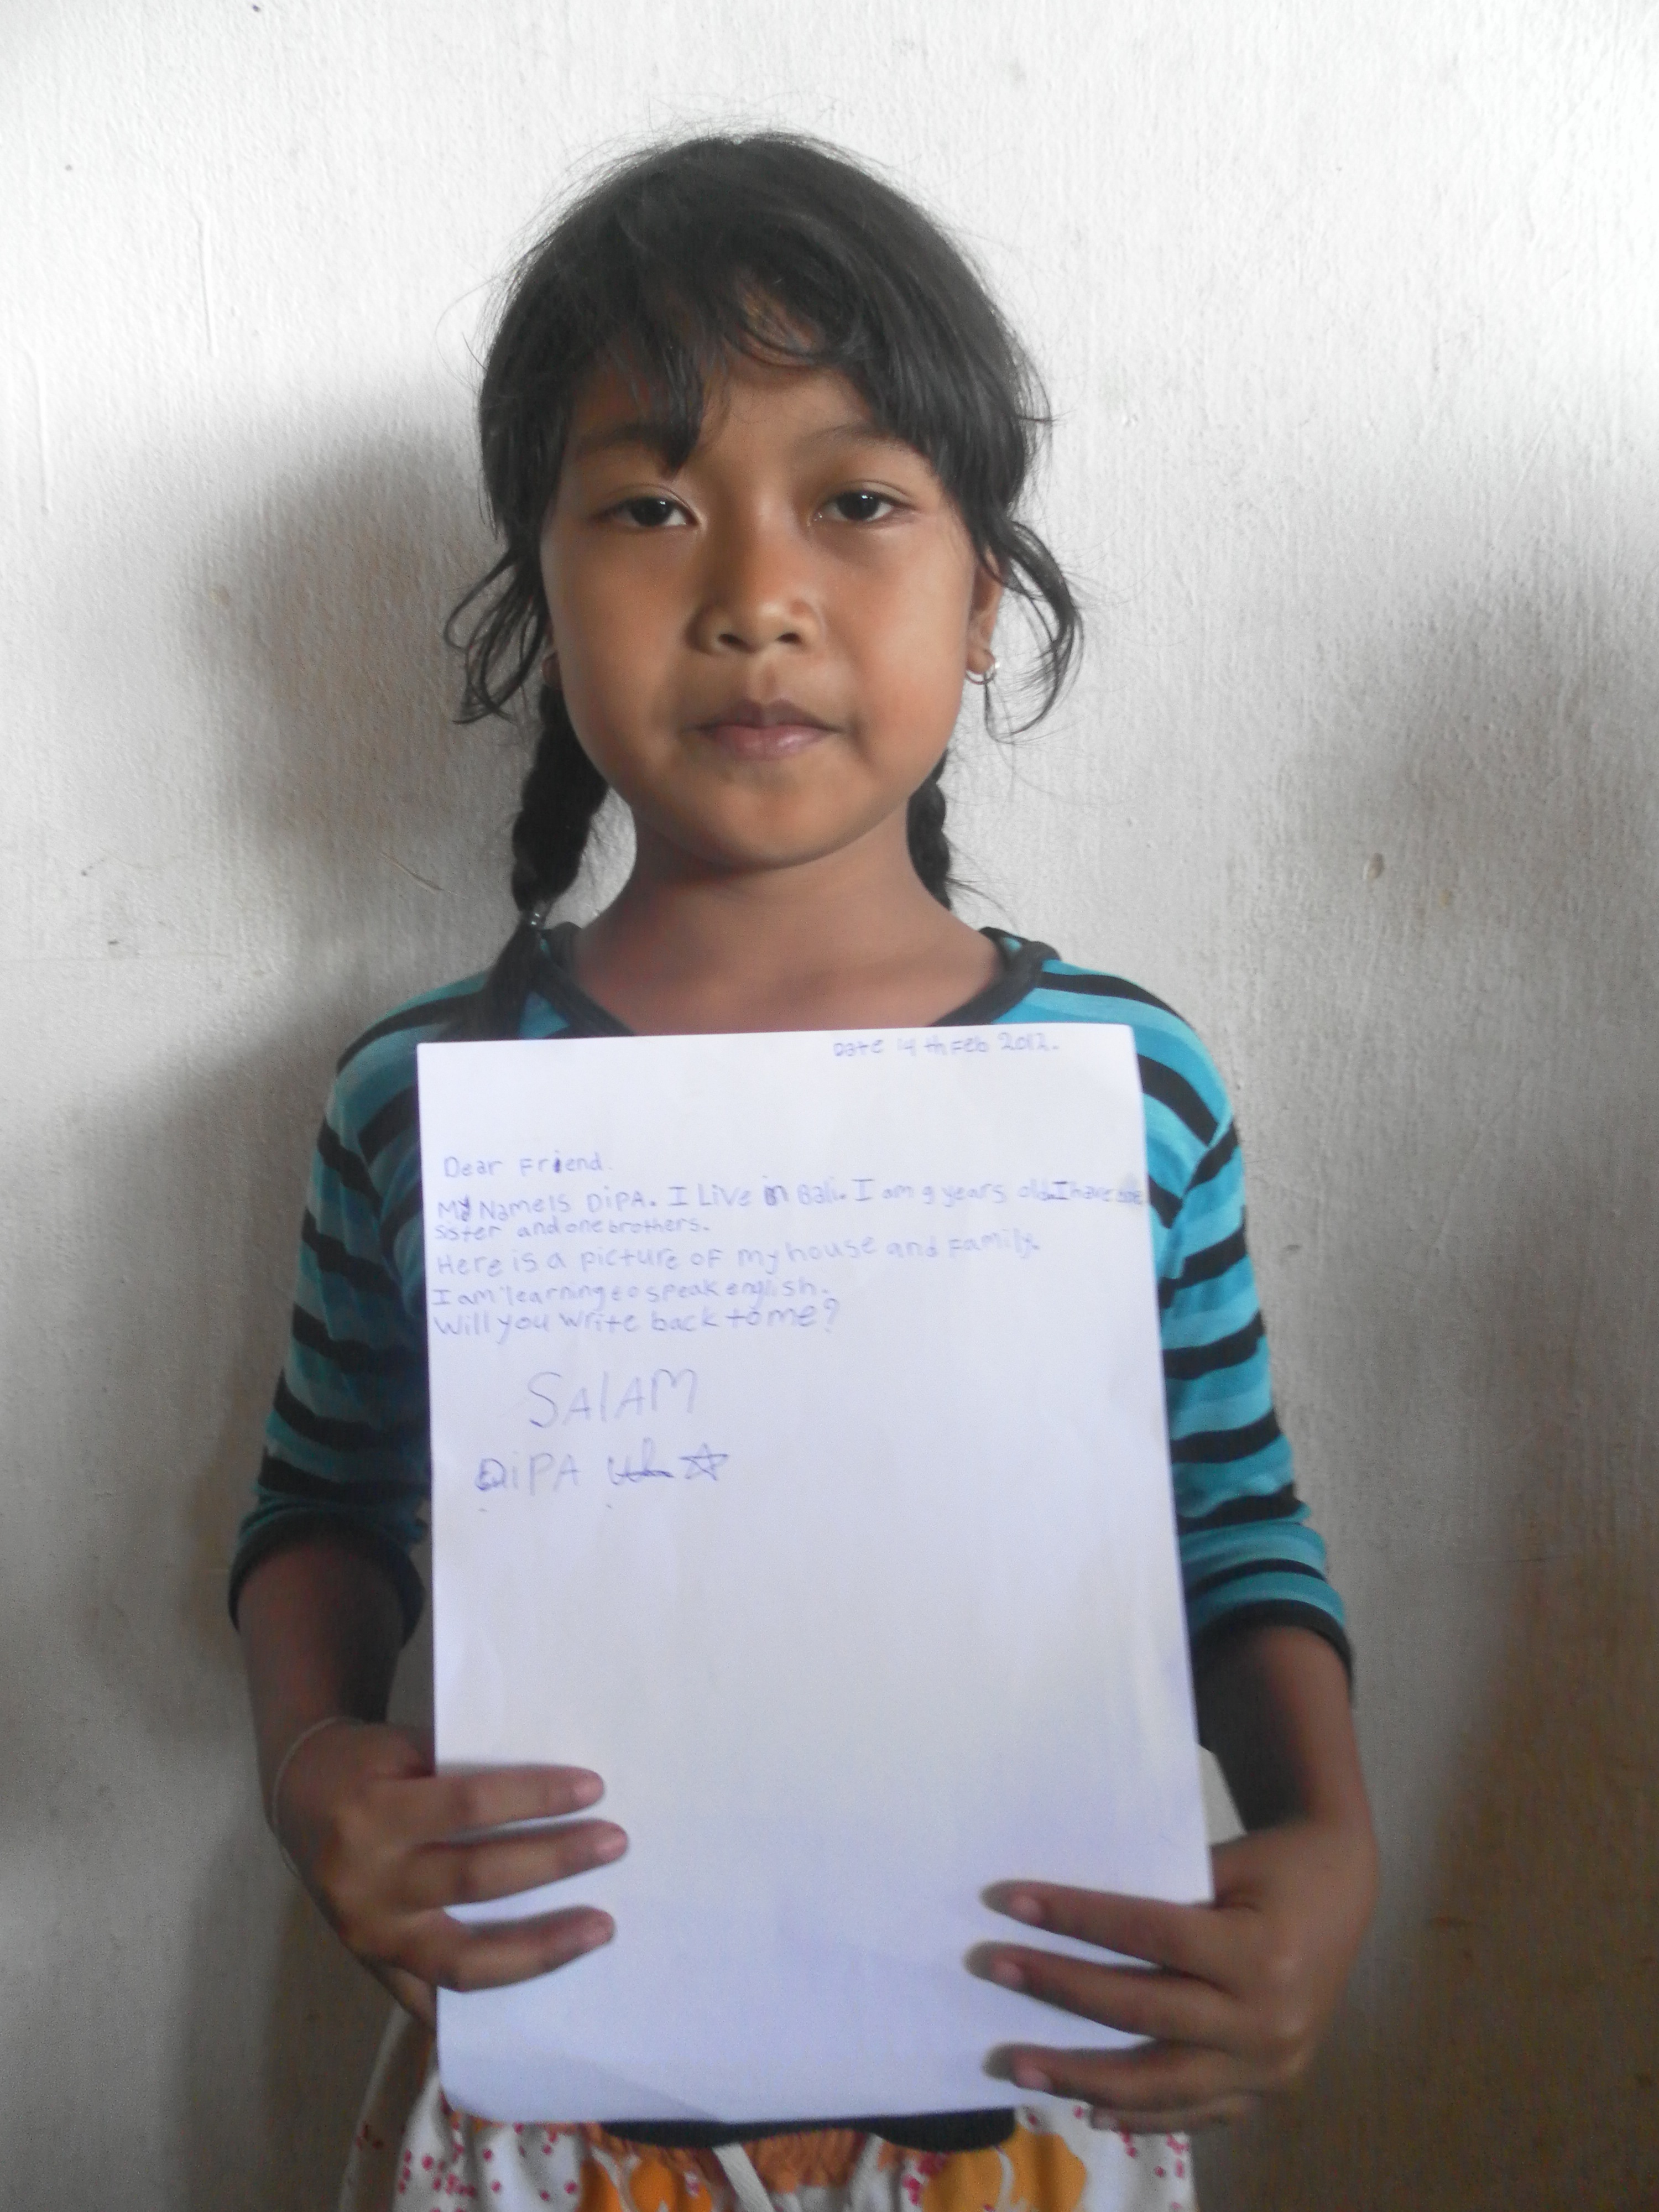 Date 14 th Feb 2012.
Dear Friend.
My Name is DiPA. I Live in Bali. I am 9 years old. I have one
sister and one brothers.
Here is a picture of my house and Family.
I am learning to speak english.
Will you write back to me?
SALAM
DiPA